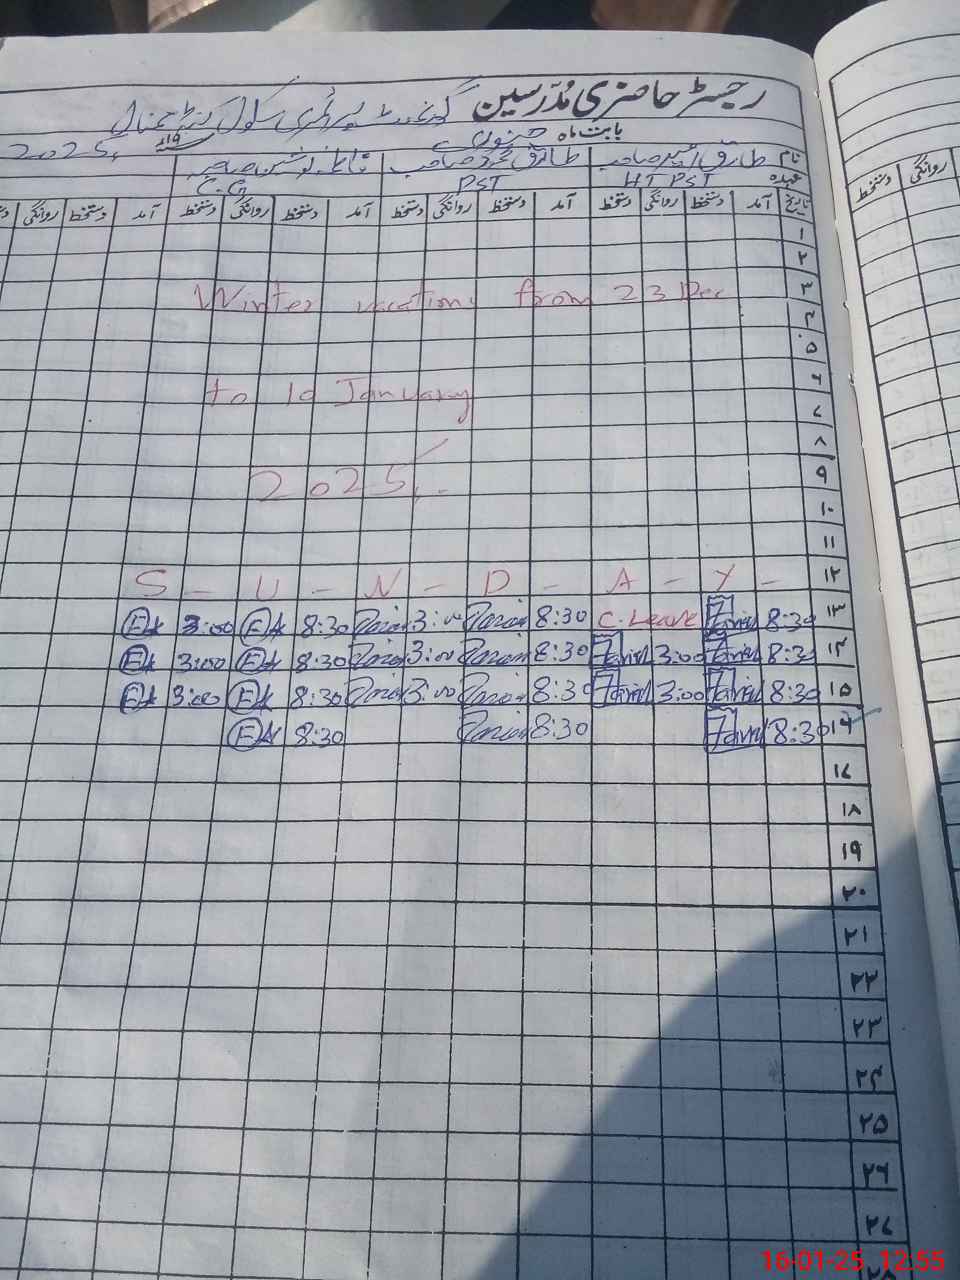 رجسٹر حاضری مُدرسین گورنمنٹ پرائمری سکول
بابت ماہ جنوری 2025ء
نام طارق امیر صاحب طارق محمود صاحب
عہدہ HT PST PST
تاریخ آمد دستخط روانگی دستخط آمد دستخط روانگی دستخط آمد دستخط روانگی دستخط آمد دستخط روانگی
۱
۲
۳ Winter vacations from 23 Dec
۴
۵
۶ to 10 January
۷
۸
۹ 2025
۱۰
۱۱
۱۲ S - U - N - D - A - Y -
۱۳ 8:30 C. Leave 8:30 3:00 8:30 3:00
۱۴ 8:30 3:00 8:30 3:00 8:30 3:00
۱۵ 8:30 3:00 8:30 3:00 8:30 3:00
۱۶ 8:30 8:30 8:30
۱۷
۱۸
۱۹
۲۰
۲۱
۲۲
۲۳
۲۴
۲۵
۲۶
۲۷
روانگی دستخط
16-01-25 12:55